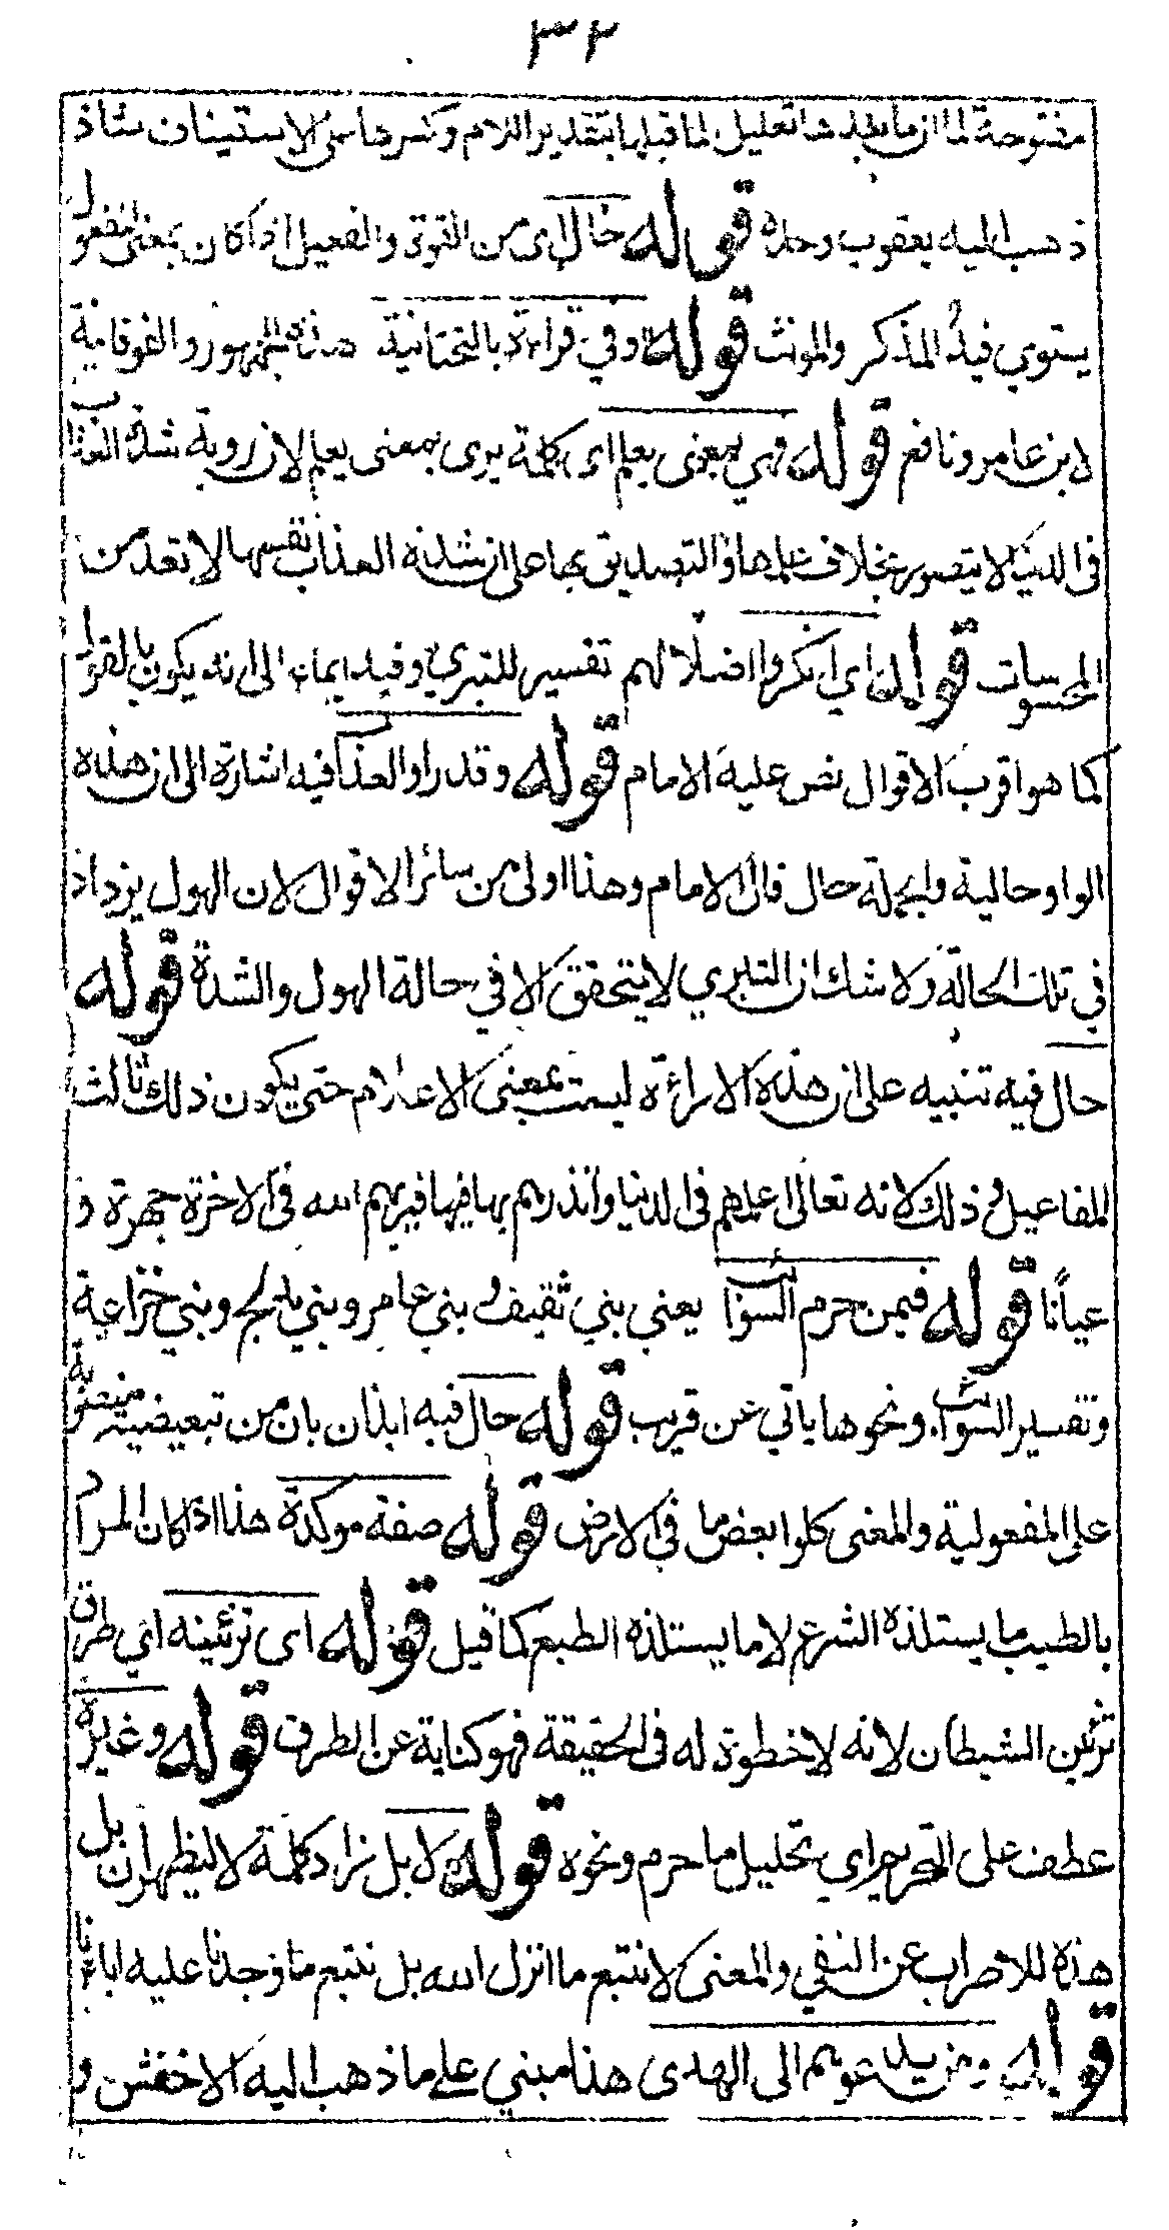 ٣٢
مفتوحة لما ان ما بعدها تعليل لما قبلها بتقدير اللام وكسرها على الاستيناف شاذ
ذهب اليه يعقوب وحده قوله حال اى من القوة والفعيل اذا كان بمعنى المفعول
يستوي فيه المذكر والمونث قوله وفي قراءة بالتحتانية هذه للجمهور والفوقانية
لابن عامر ونافع قوله فهي بمعنى يعلم اى كلمة يرى بمعنى يعلم لان روية شدة العذاب
فى الدنيا لا يتصور بخلاف علمها والتصديق بها على ان شدة العذاب نفسها لا تعد من
المحسوسات قوله اي انكروا اضلالهم تفسير للتبري وفيه ايماء الى انه يكون بالقول
كما هو اقرب الاقوال نص عليه الامام قوله وقد راوا العذاب فيه اشارة الى ان هذه
الواو حالية والجملة حال قال الامام وهذا اولى من سائر الاقوال لان الهول يزداد
في تلك الحالة ولا شك ان التبري لا يتحقق الا في حالة الهول والشدة قوله
حال فيه تنبيه على ان هذه الاراءة ليست بمعنى الاعلام حتى يكون ذلك ثالث
المفاعيل و ذلك لانه تعالى اعلمهم فى الدنيا وانذرهم بها فيها فيريهم الله فى الاخرة جهرة و
عيانًا قوله فيمن حرم السوائب يعني بني ثقيف و بني عامر وبني مدلج وبني خزاعة
وتفسير السوائب ونحوها ياتي عن قريب قوله حال فيه ايذان بان من تبعيضية منصوبة
على المفعولية والمعنى كلوا بعض ما في الارض قوله صفة موكدة هذا اذا كان المراد
بالطيب ما يستلذه الشرع لا ما يستلذه الطبع كما قيل قوله اى تزئينه اي طرق
تزئين الشيطان لانه لا خطوة له فى الحقيقة فهو كناية عن الطرق قوله وغيره
عطف على التحريم اي تحليل ما حرم ونحوه قوله لا بل زاد كلمة لا ليظهر ان بل
هذه للاضراب عن النفي والمعنى لا نتبع ما انزل الله بل نتبع ما وجدنا عليه اباءنا
قوله ومن يدعوهم الى الهدى هذا مبني على ما ذهب اليه الاخفش و